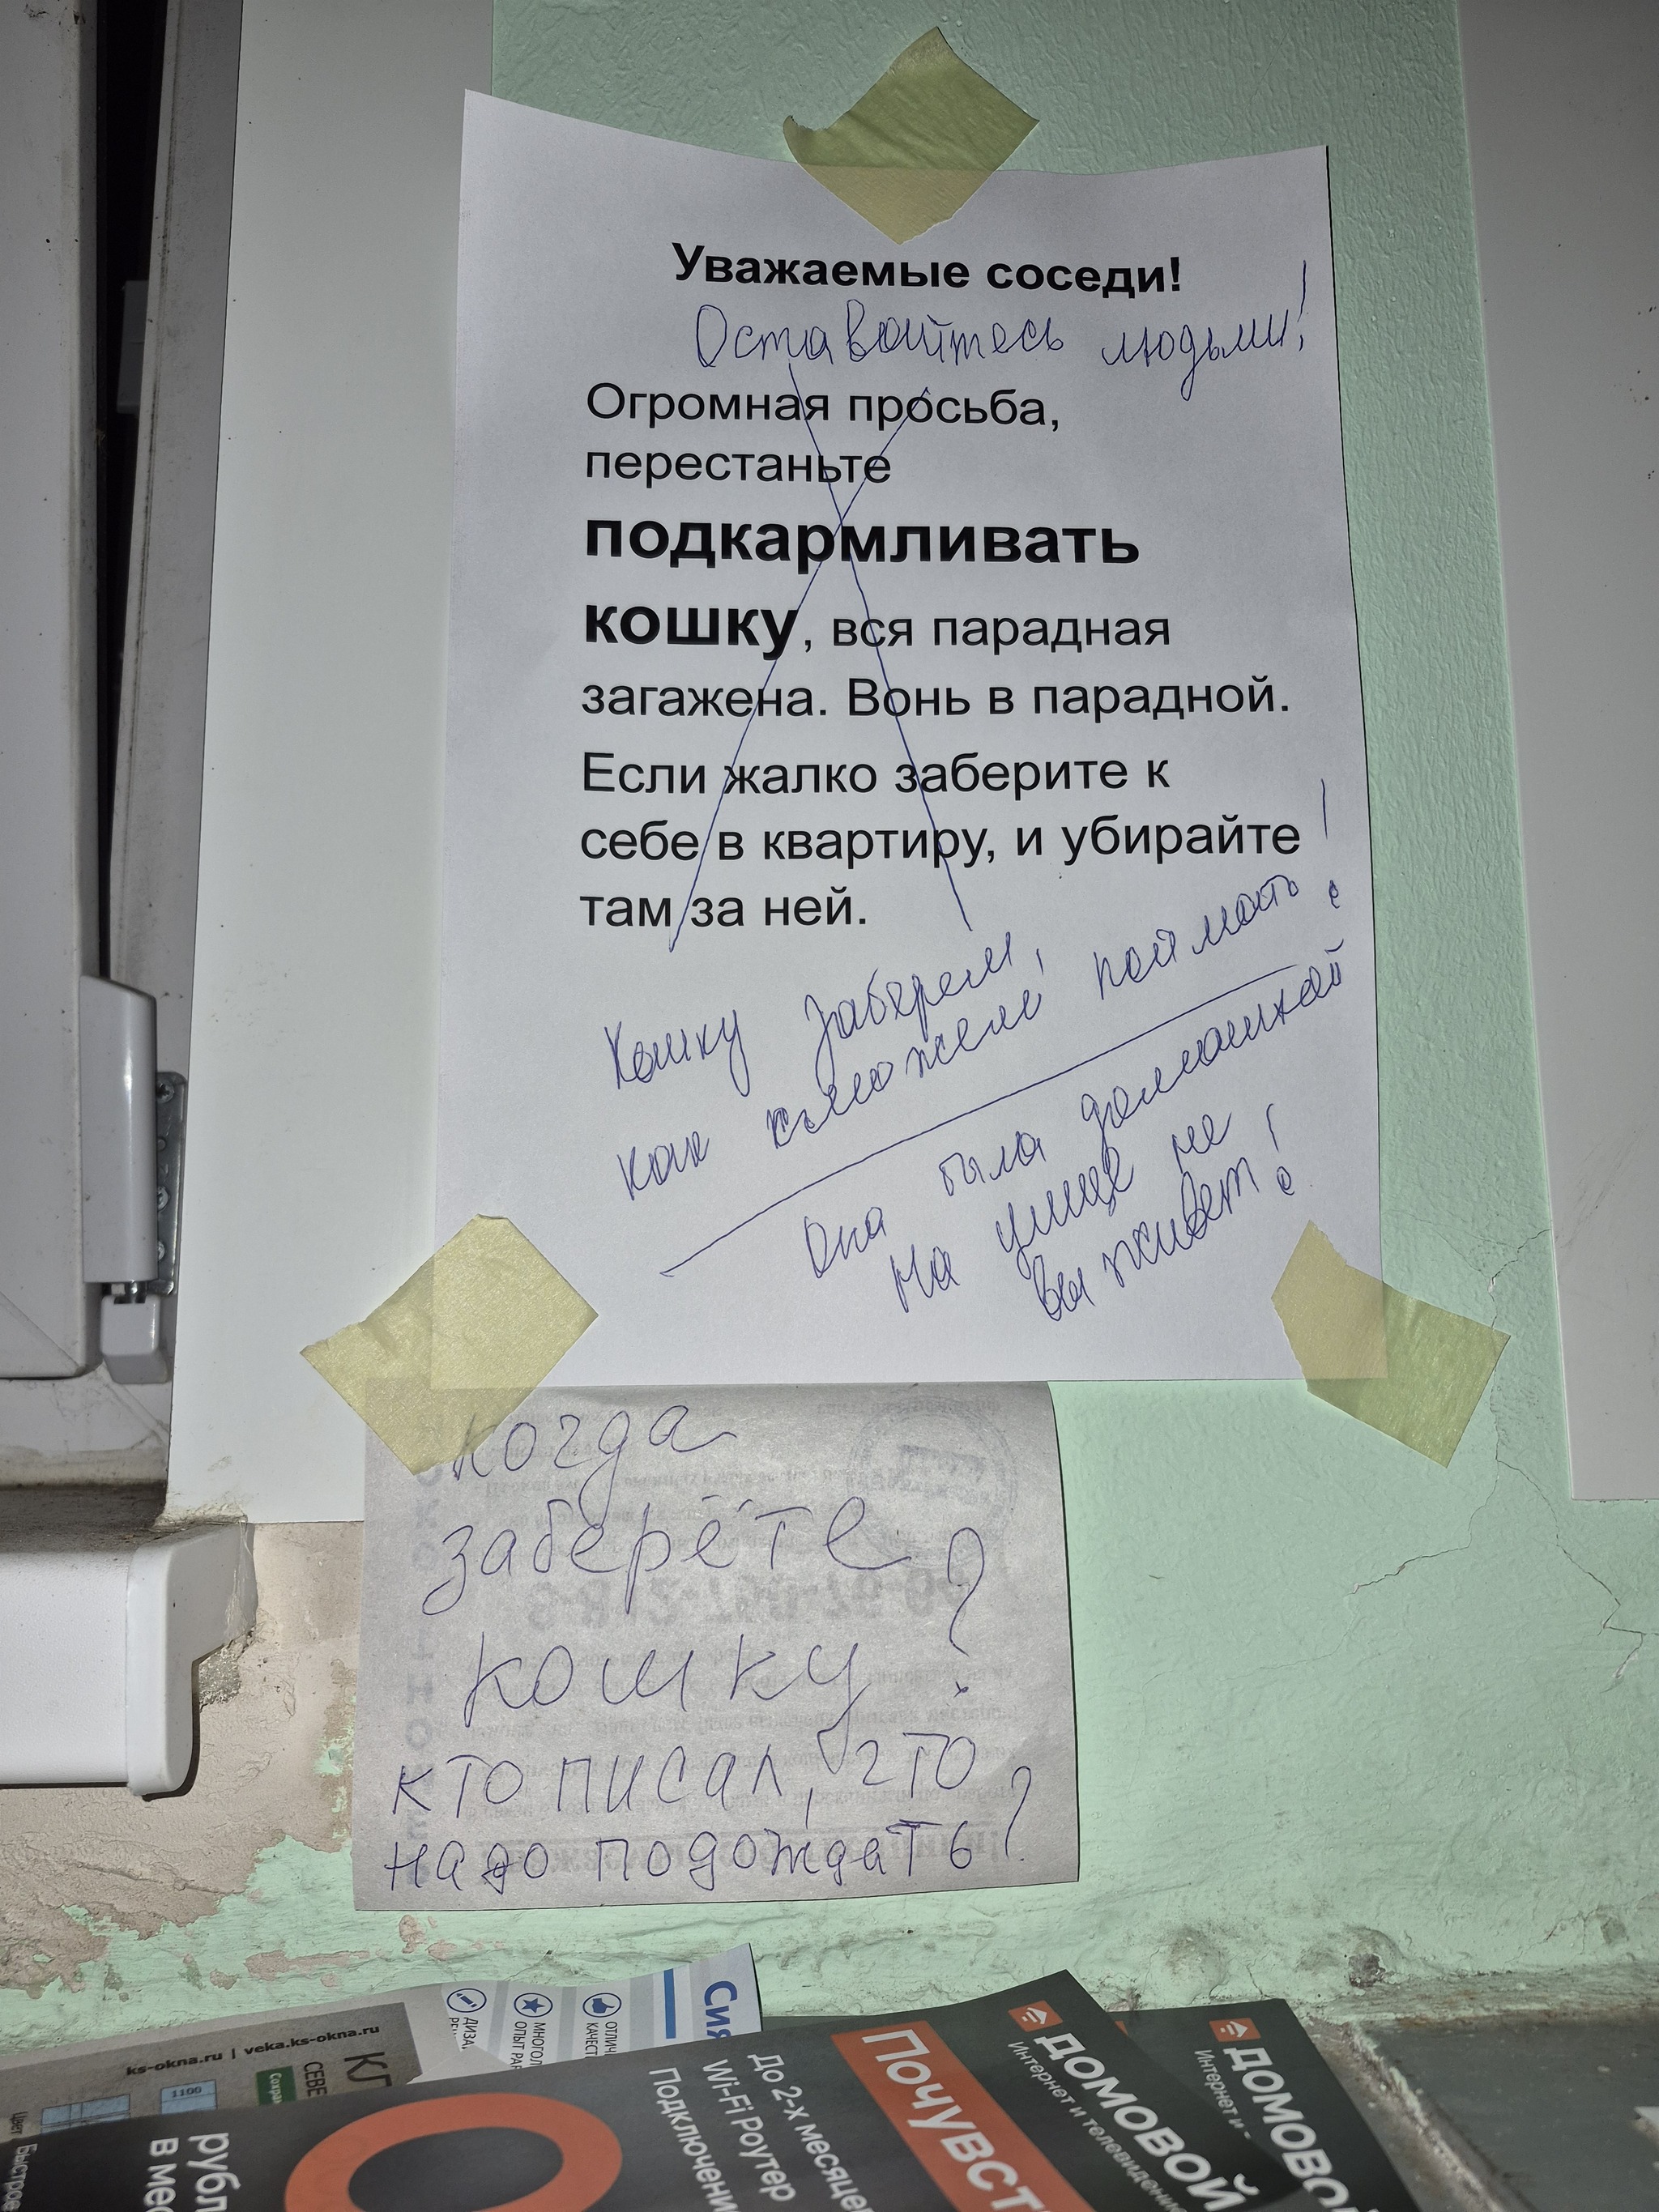 Уважаемые соседи!
Оставайтесь людьми!
Огромная просьба,
перестаньте
подкармливать
кошку, вся парадная
загажена. Вонь в парадной.
Если жалко заберите к
себе в квартиру, и убирайте
там за ней.
Кошку заберем,
как сможем поймать!
Она была домашней
на улице не
выживет!
когда
заберёте
кошку?
кто писал, что
надо подождать?
ks-okna.ru | veka.ks-okna.ru
1100
Быстрое
рубл
в мес
До 2-х месяце
Wi-Fi Роутер
Подключени
Почувст
ДОМОВОЙ
Интернет и телевидение
ДОМОВОЙ
Интернет и